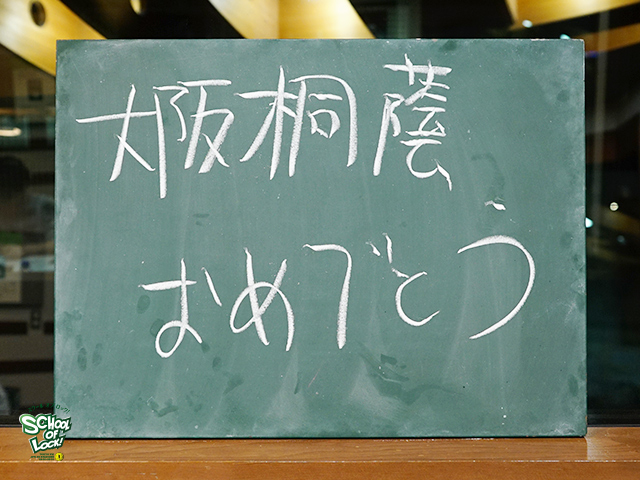 大阪桐蔭
おめでとう
SCHOOL
OF
LOCK!